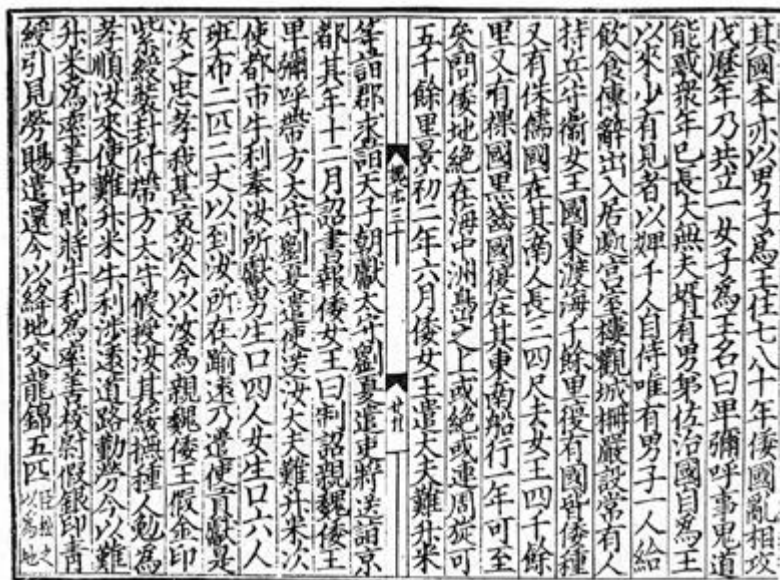 其國本亦以男子為王住七八十年倭國亂相攻
伐歷年乃共立一女子為王名曰卑彌呼事鬼道
能惑衆年已長大無夫壻有男弟佐治國自為王
以來少有見者以婢千人自侍唯有男子一人給
飲食傳辭出入居處宮室樓觀城柵嚴設常有人
持兵守衞女王國東渡海千餘里復有國皆倭種
又有侏儒國在其南人長三四尺去女王四千餘
里又有裸國黑齒國復在其東南船行一年可至
參問倭地絕在海中洲㠀之上或絕或連周旋可
五千餘里景初二年六月倭女王遣大夫難升米
魏志三十
等詣郡求詣天子朝獻太守劉夏遣吏將送詣京
都其年十二月詔書報倭女王曰制詔親魏倭王
卑彌呼帶方太守劉夏遣使送汝大夫難升米次
使都市牛利奉汝所獻男生口四人女生口六人
班布二匹二丈以到汝所在踰遠乃遣使貢獻是
汝之忠孝我甚哀汝今以汝為親魏倭王假金印
紫綬裝封付帶方太守假授汝其綏撫種人勉為
孝順汝來使難升米牛利涉遠道路勤勞今以難
升米為率善中郎將牛利為率善校尉假銀印青
綬引見勞賜遣還今以絳地交龍錦五匹臣松之以為地